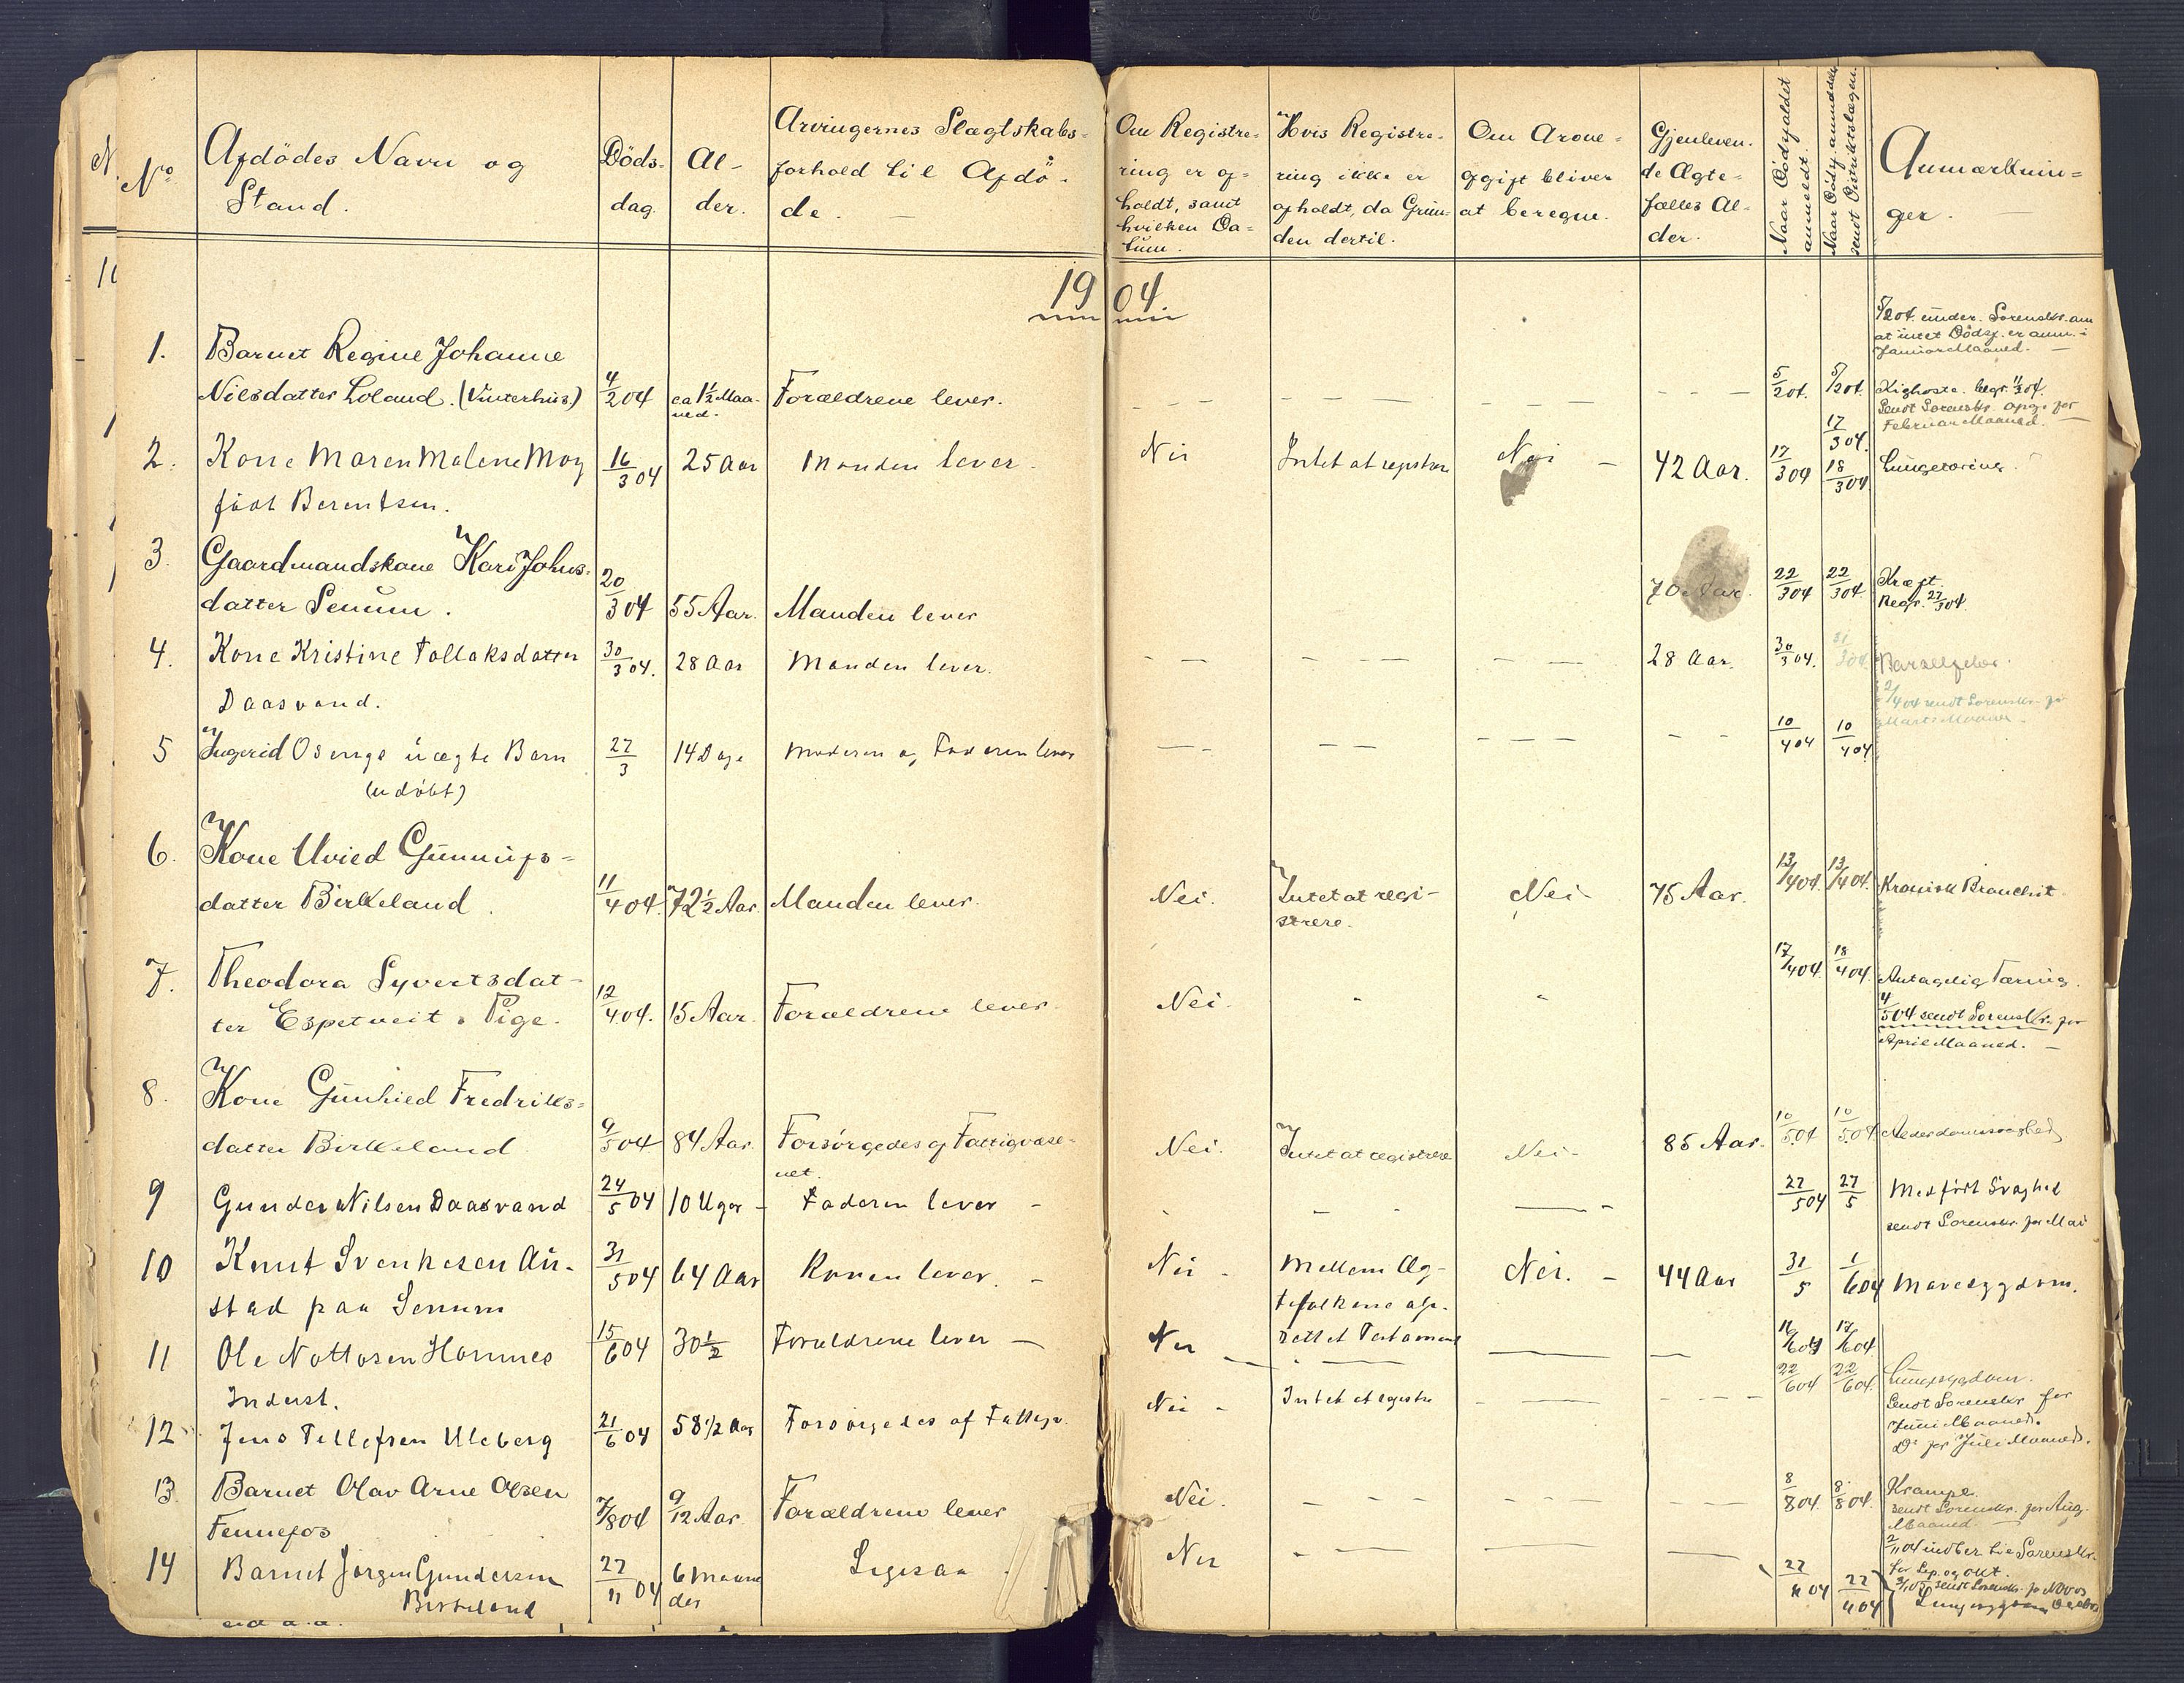 No
Afdödes Navn og
Stand.
Döds-
dag.
Al-
der.
Arvingernes Slægtskabs-
forhold til Afdö-
de.
Om Registre-
ring er af-
holdt, samt
hvilken Da-
tum.
Hvis Registre-
ring ikke er
afholdt, da Grun-
den dertil.
Om Arve-
afgift bliver
at beregne.
Gjenleven-
de Ægte-
fælles Al-
der.
Naar Dödsfaldet
anmeldt.
Naar Dödsf. anmeldelse
sendt Distriktslægen.
Anmærknin-
ger.
1904.
5/2 04 under. Sorenskr. om
at intet Dödsf. er anm. i
Januar Maaned.
1. Barnet Regine Johanne
Nilsdatter Loland. (Vinterhus) 4/2 04 ca 1½ Maa-
ned. Forældrene lever. - - - - - - - - - - - - 5/2 04. 5/2 04. Kighoste. begr. 11/3 04.
Sendt Sorenskr. opg. for
Februar Maaned. 17/3 04.
2. Kone Maren Malene Moy 16/3 04 25 Aar Manden lever. Nei Intet at registrere Nei - 42 Aar. 17/3 04 18/3 04 Lungetæring
födt Berentsen.
3. Gaardmandskone Kari Johns-
datter Senum. 20/3 04 55 Aar. Manden lever 70 Aar. 22/3 04 22/3 04. Kræft.
Regr. 27/3 04.
4. Kone Kristine Tollaksdatter 30/3 04. 28 Aar Manden lever. - - - - - - - 28 Aar. 30/3 04. 31/3 04. Barselfeber.
Daasvand.
2/4 04 sendt Sorenskr. for
Marts Maaned.
5 Ingerid Osengs uægte Barn 27/3 14 Dage Moderen og Faderen lever - - - - - - - - - 10/4 04 10/4 04
(udöbt)
6. Kone Uvied Gunnufs-
datter Birkeland. 11/4 04. 72½ Aar. Manden lever. Nei. Intet at regi-
strere. Nei 75 Aar. 13/4 04. 13/4 04. Kronisk Bronchit.
7. Theodora Syvertsdat-
ter Espetveit. Pige. 12/4 04. 15 Aar. Forældrene lever. Nei. " " 17/4 04. 18/4 04. Antagelig Tæring.
4/5 04 sendt Sorenskr. for
April Maaned.
8. Kone Gunhied Fredriks-
datter Birkeland 9/5 04 84 Aar. Forsörgedes af Fattigvæse-
net. Nei. Intet at registrere Nei- 85 Aar. 10/5 04 10/5 04 Alderdomssvaghed
9 Gunder Nilsen Daasvand 24/5 04 10 Uger - Faderen lever - - - - - 27/5 04 27/5 Medfödt Svaghed
sendt Sorenskr. for Mai
10 Knut Svenkesen Au-
stad paa Senum 31/5 04 64 Aar Konen lever. - Nei - Mellem Æg-
tefolkene op-
rettet Testament Nei. - 44 Aar 31/5 1/6 04 Mavesygdom.
11 Ole Nottosen Hornnes 15/6 04 30½ Forældrene lever - Nei - - - - 16/6 04 17/6 04.
Inderst.
12 Jens Tellefsen Uleberg 21/6 04 58 1/2 Aar Forsörgedes af Fattigv. Nei - Intet at registre - - - - - - 22/6 04 22/6 04. Lungesygdom.
Sendt Sorenskr for
Juni Maaned.
Do for Juli Maaned.
13 Barnet Olav Arne Olsen
Fennefos 7/8 04 9/12 Aar. Forældrene lever Nei. - - - - - - - - - 8/8 04 8/8 04. Krampe.
sendt Sorenskr. for Aug.
Maaned.
14 Barnet Jörgen Gundersen
Birkeland 27/11 04 6 Maane
der Ligesaa Nei - - - - 27/11 04 27/11 04
2/11 04 indber. til Sorenskr.
for Sep. og Okt.
sendt Sorenskr. for Novbr
Lungesygdom